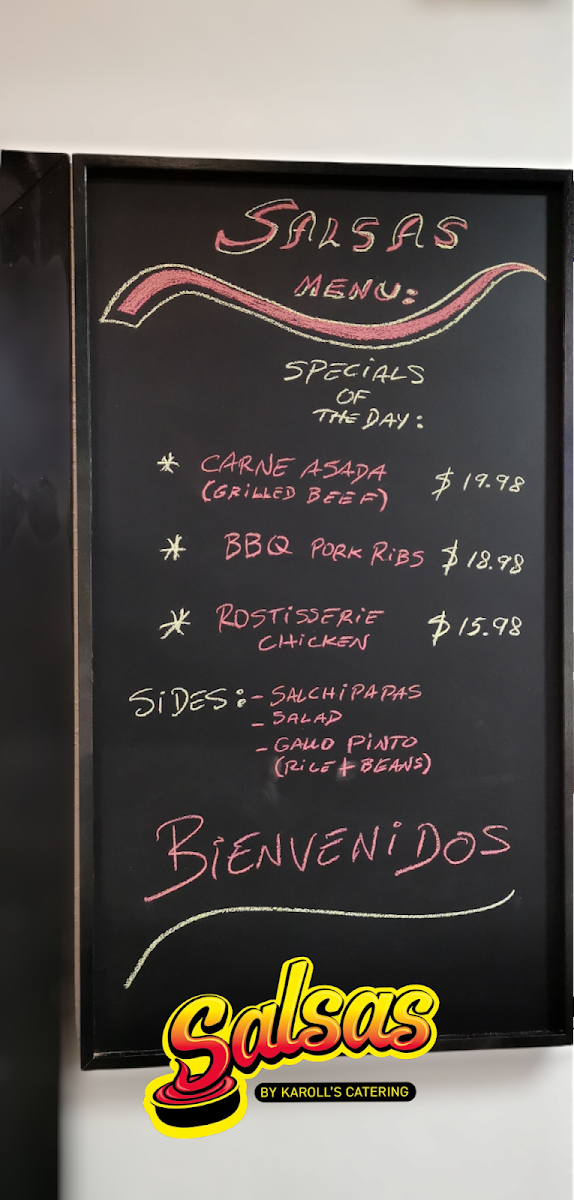 SALSAS
MENU:
SPECIALS
OF
THE DAY:
* CARNE ASADA $19.98
(GRILLED BEEF)
* BBQ PORK RIBS $18.98
* ROSTISSERIE $15.98
CHICKEN
SIDES: - SALCHIPAPAS
- SALAD
- GALLO PINTO
(RICE + BEANS)
BIENVENIDOS
Salsas
BY KAROLL'S CATERING